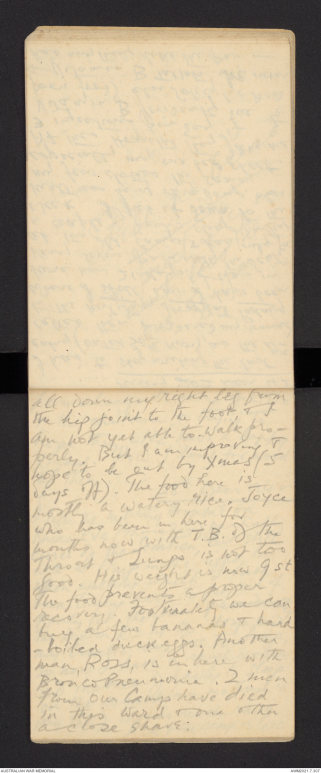 all down my right leg from
the hip joint to the foot, & I
am not yet able to walk pro-
perly. But I am improving &
hope to be out by Xmas (5
days off). The food here is
mostly a watery rice. Joyce
who has been in here for
months now with T.B. of the
Throat & Lungs is not too
good. His weight is now 9 st
the food prevents a proper
recovery. Fortunately we can
buy a few bananas & hard
-boiled duck eggs. Another
man, Ross, is in here with
Bronco Pneumonia. 2 men
from our Camp have died
in this ward & one other
a close shave.
AUSTRALIAN WAR MEMORIAL